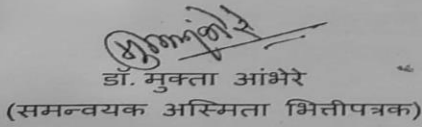 डॉ. मुक्ता आंभेरे
(समन्वयक अस्मिता भित्तीपत्रक)